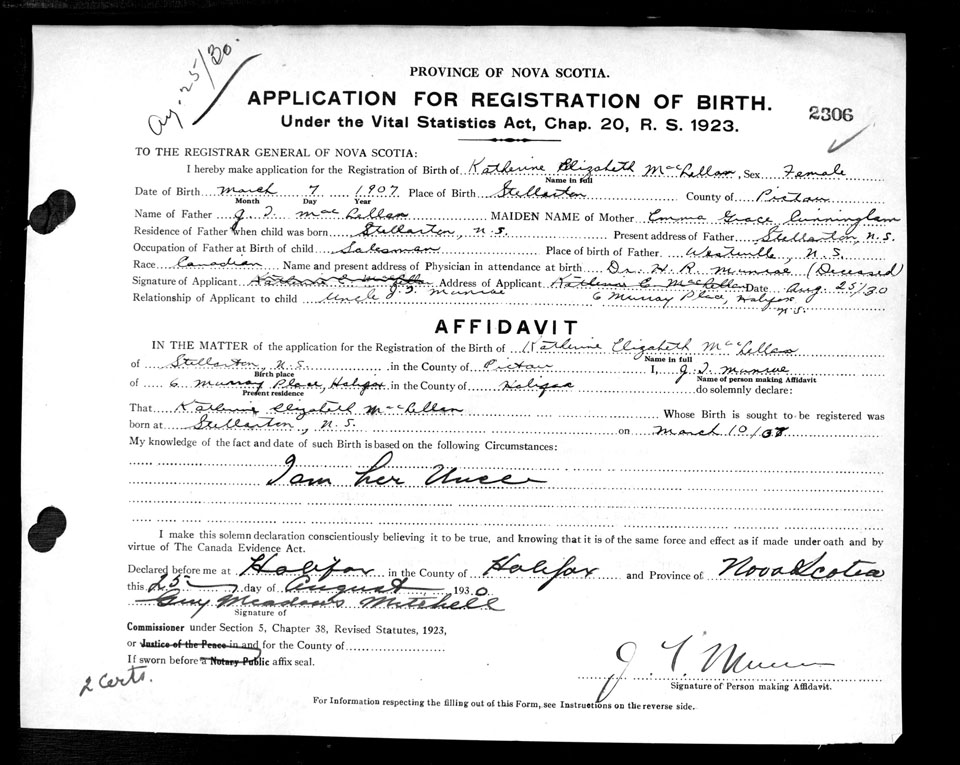 Aug. 25/30.
PROVINCE OF NOVA SCOTIA.
APPLICATION FOR REGISTRATION OF BIRTH.
2306
Under the Vital Statistics Act, Chap. 20, R. S. 1923.
TO THE REGISTRAR GENERAL OF NOVA SCOTIA:
I hereby make application for the Registration of Birth of Katherine Elizabeth MacLellan, Sex Female
Name in full
Date of Birth March 7 1907 Place of Birth Stellarton County of Pictou
Month Day Year
Name of Father J. T. MacLellan MAIDEN NAME of Mother Emma Grace Cunningham
Residence of Father when child was born Stellarton, N.S. Present address of Father Stellarton, N.S.
Occupation of Father at Birth of child Salesman Place of birth of Father Westville, N.S.
Race Canadian Name and present address of Physician in attendance at birth Dr. H. R. Munroe (Deceased)
Signature of Applicant Katherine E. MacLellan Address of Applicant Katherine E. MacLellan Date Aug 25/30
Relationship of Applicant to child Uncle J. T. Munroe 6 Murray Place, Halifax
N.S.
AFFIDAVIT
IN THE MATTER of the application for the Registration of the Birth of Katherine Elizabeth MacLellan
Name in full
of Stellarton, N.S. in the County of Pictou I, J. T. Munroe
Birth place Name of person making Affidavit
of 6 Murray Place, Halifax in the County of Halifax do solemnly declare:
Present residence
That Katherine Elizabeth MacLellan Whose Birth is sought to be registered was
born at Stellarton, N.S. on March 10/
My knowledge of the fact and date of such Birth is based on the following Circumstances:
I am her Uncle
I make this solemn declaration conscientiously believing it to be true, and knowing that it is of the same force and effect as if made under oath and by
virtue of The Canada Evidence Act.
Declared before me at Halifax in the County of Halifax and Province of Nova Scotia
this 25 day of August, 1930.
Guy Meadows Mitchell
Signature of
Commissioner under Section 5, Chapter 38, Revised Statutes, 1923,
or Justice of the Peace in and for the County of
If sworn before a Notary Public affix seal.
J. T. Munroe
Signature of Person making Affidavit.
2 Certs.
For Information respecting the filling out of this Form, see Instructions on the reverse side.